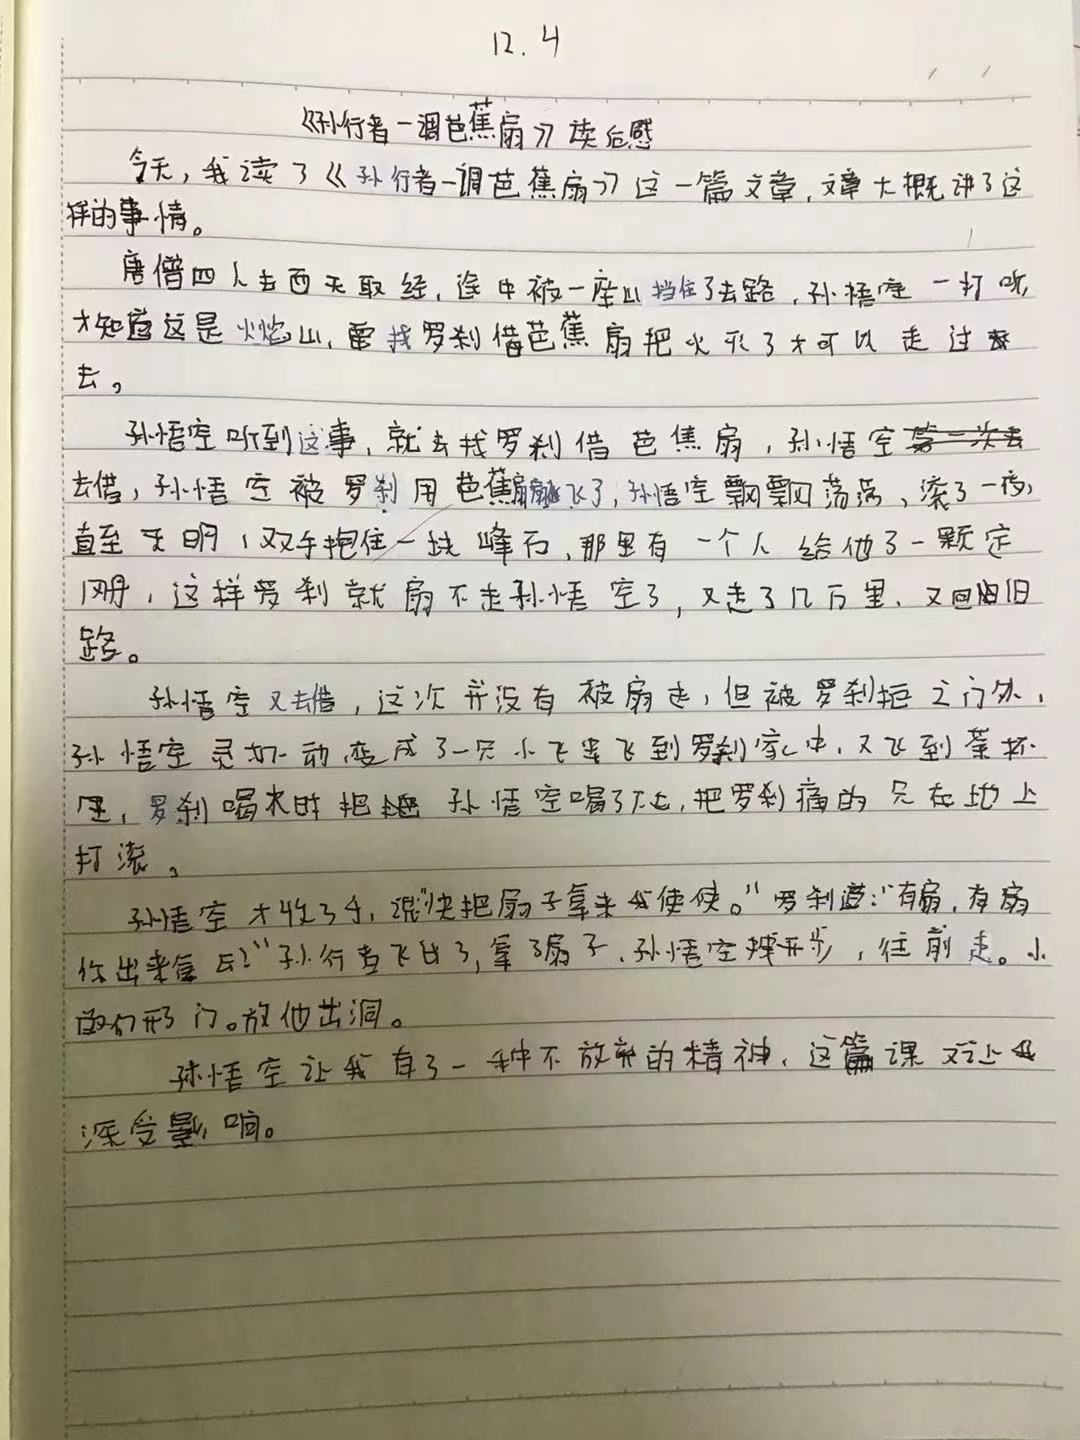 12.4
《孙行者一调芭蕉扇》读后感
今天，我读了《孙行者一调芭蕉扇》这一篇文章，文章大概讲了这
样的事情。
唐僧四人去西天取经，途中被一座山挡住了去路，孙悟空一打听，
才知道这是火焰山，要找罗刹借芭蕉扇把火灭了才可以走过
去。
孙悟空听到这事，就去找罗刹借芭蕉扇，孙悟空
去借，孙悟空被罗刹用芭蕉扇扇飞了，孙悟空飘飘荡荡，滚了一夜，
直至天明，双手抱住一块峰石，那里有一个人给他了一颗定
风丹，这样罗刹就扇不走孙悟空了，又走了几万里，又回旧
路。
孙悟空又去借，这次并没有被扇走，但被罗刹拒之门外，
孙悟空灵机一动变成了一只小飞虫飞到罗刹家中，又飞到茶杯
里，罗刹喝水时把孙悟空喝了下去，把罗刹痛的只在地上
打滚。
孙悟空才收了手，说“快把扇子拿来我使使。”罗刹道：“有扇，有扇
你出来拿去？”孙行者飞出了，拿了扇子，孙悟空拽开步，往前走。小
的们开了门。放他出洞。
孙悟空让我有了一种不放弃的精神，这篇课文让我
深受影响。